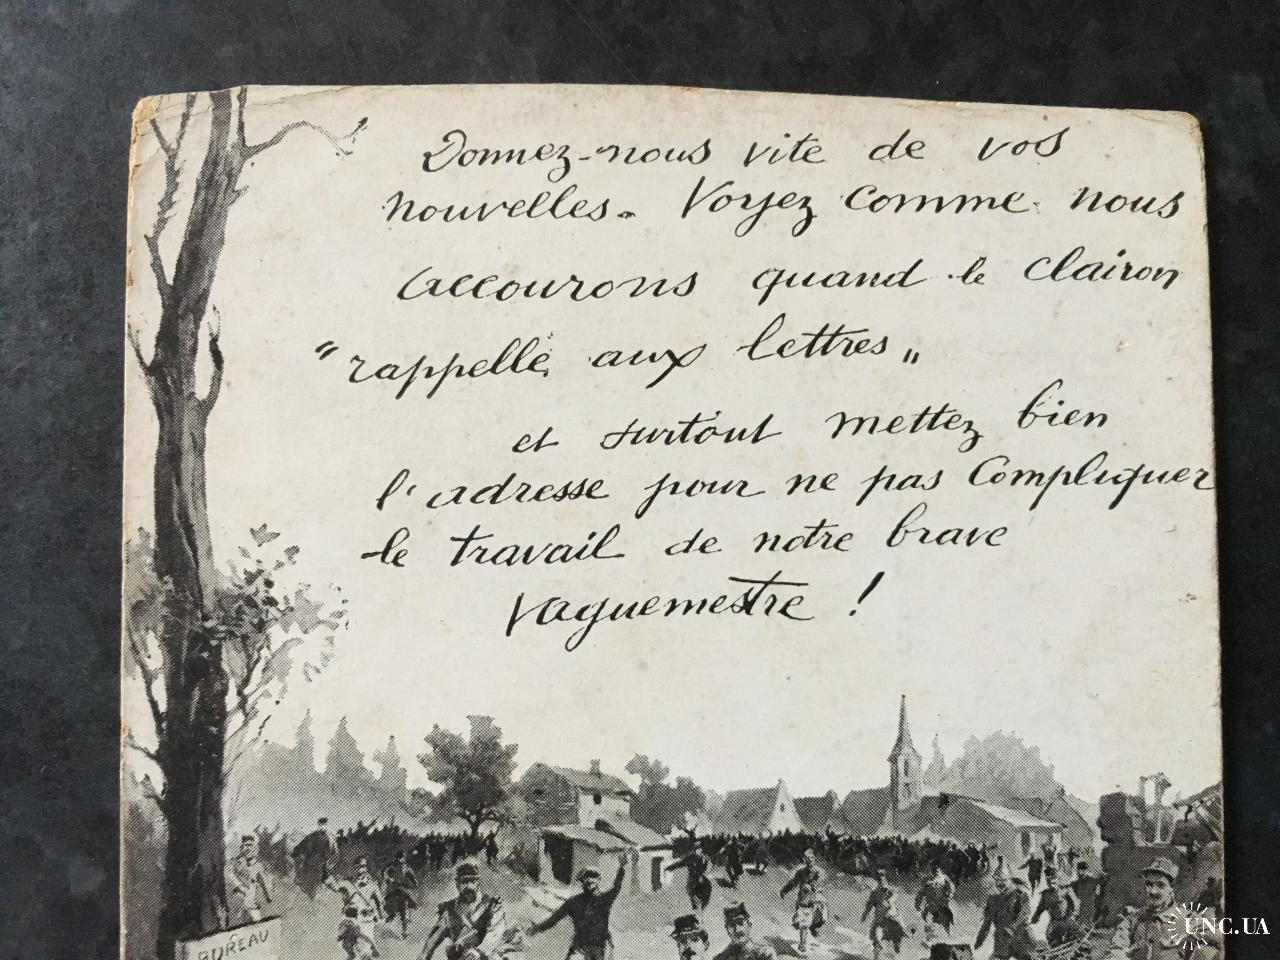 Donnez-nous vite de vos
nouvelles. Voyez comme nous
accourons quand le clairon
"rappelle aux lettres"
et surtout mettez bien
l'adresse pour ne pas compliquer
le travail de notre brave
Vaguemestre !
BUREAU
UNC.UA